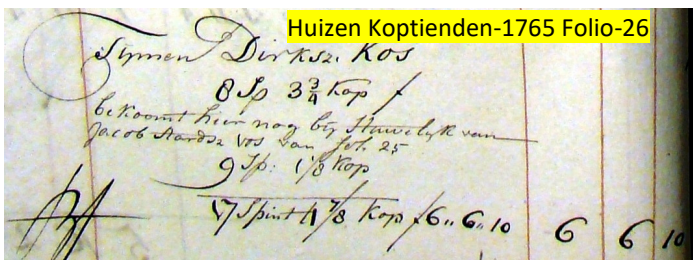 Huizen Koptienden-1765 Folio-26
Tijmen Dirksz. Kos
8 Sp 3 3/4 Kop f
bekoomt hier nog bij Huwelijk van
Jacob Aardsz Vos van fol. 25
9 Sp: 1 1/8 Kop
17 Spint 4 7/8 Kop f6„6„10 6 6 10